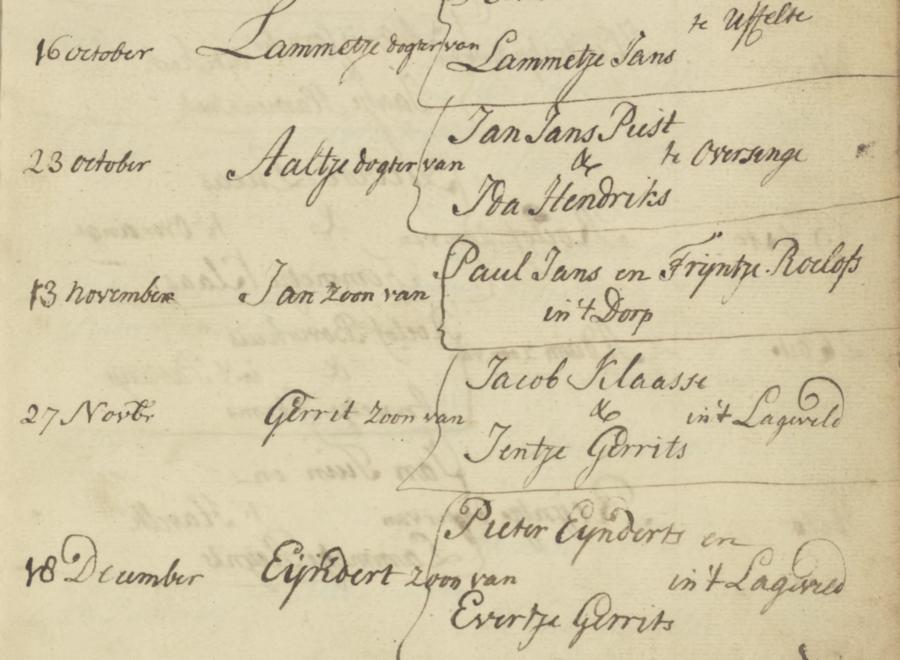 te Uffelte
16 october Lammetje dogter van Lammetje Jans
Jan Jans Piest
23 october Aaltje dogter van & te Oversinge
Ida Hendriks
Paul Jans en Frijntje Roelofs
13 november Jan zoon van
in't Dorp
Jacob Klaasse
27 Novbr Gerrit zoon van & in't Lageveld
Jentje Gerrits
Pieter Eynderts en
18 December Eijndert zoon van in't Lageveld
Evertje Gerrits